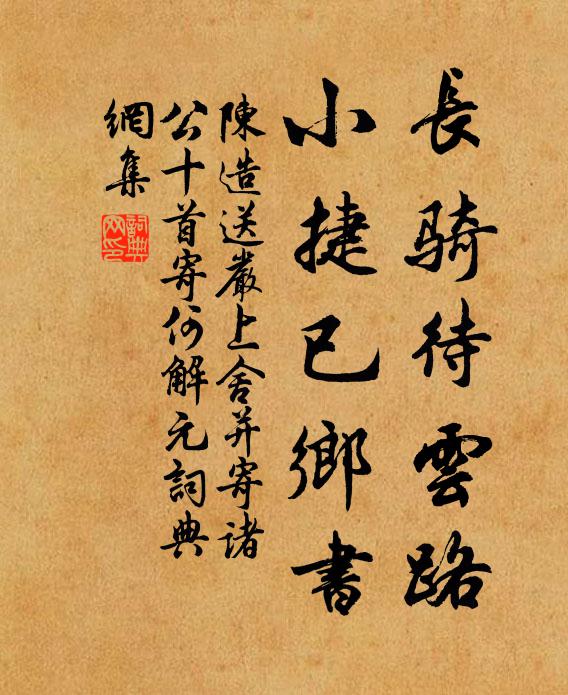 長騎待雲路
小捷已鄉書
陳造送嚴上舍并寄諸
公十首寄何解元詞典
網集
詞典
网印